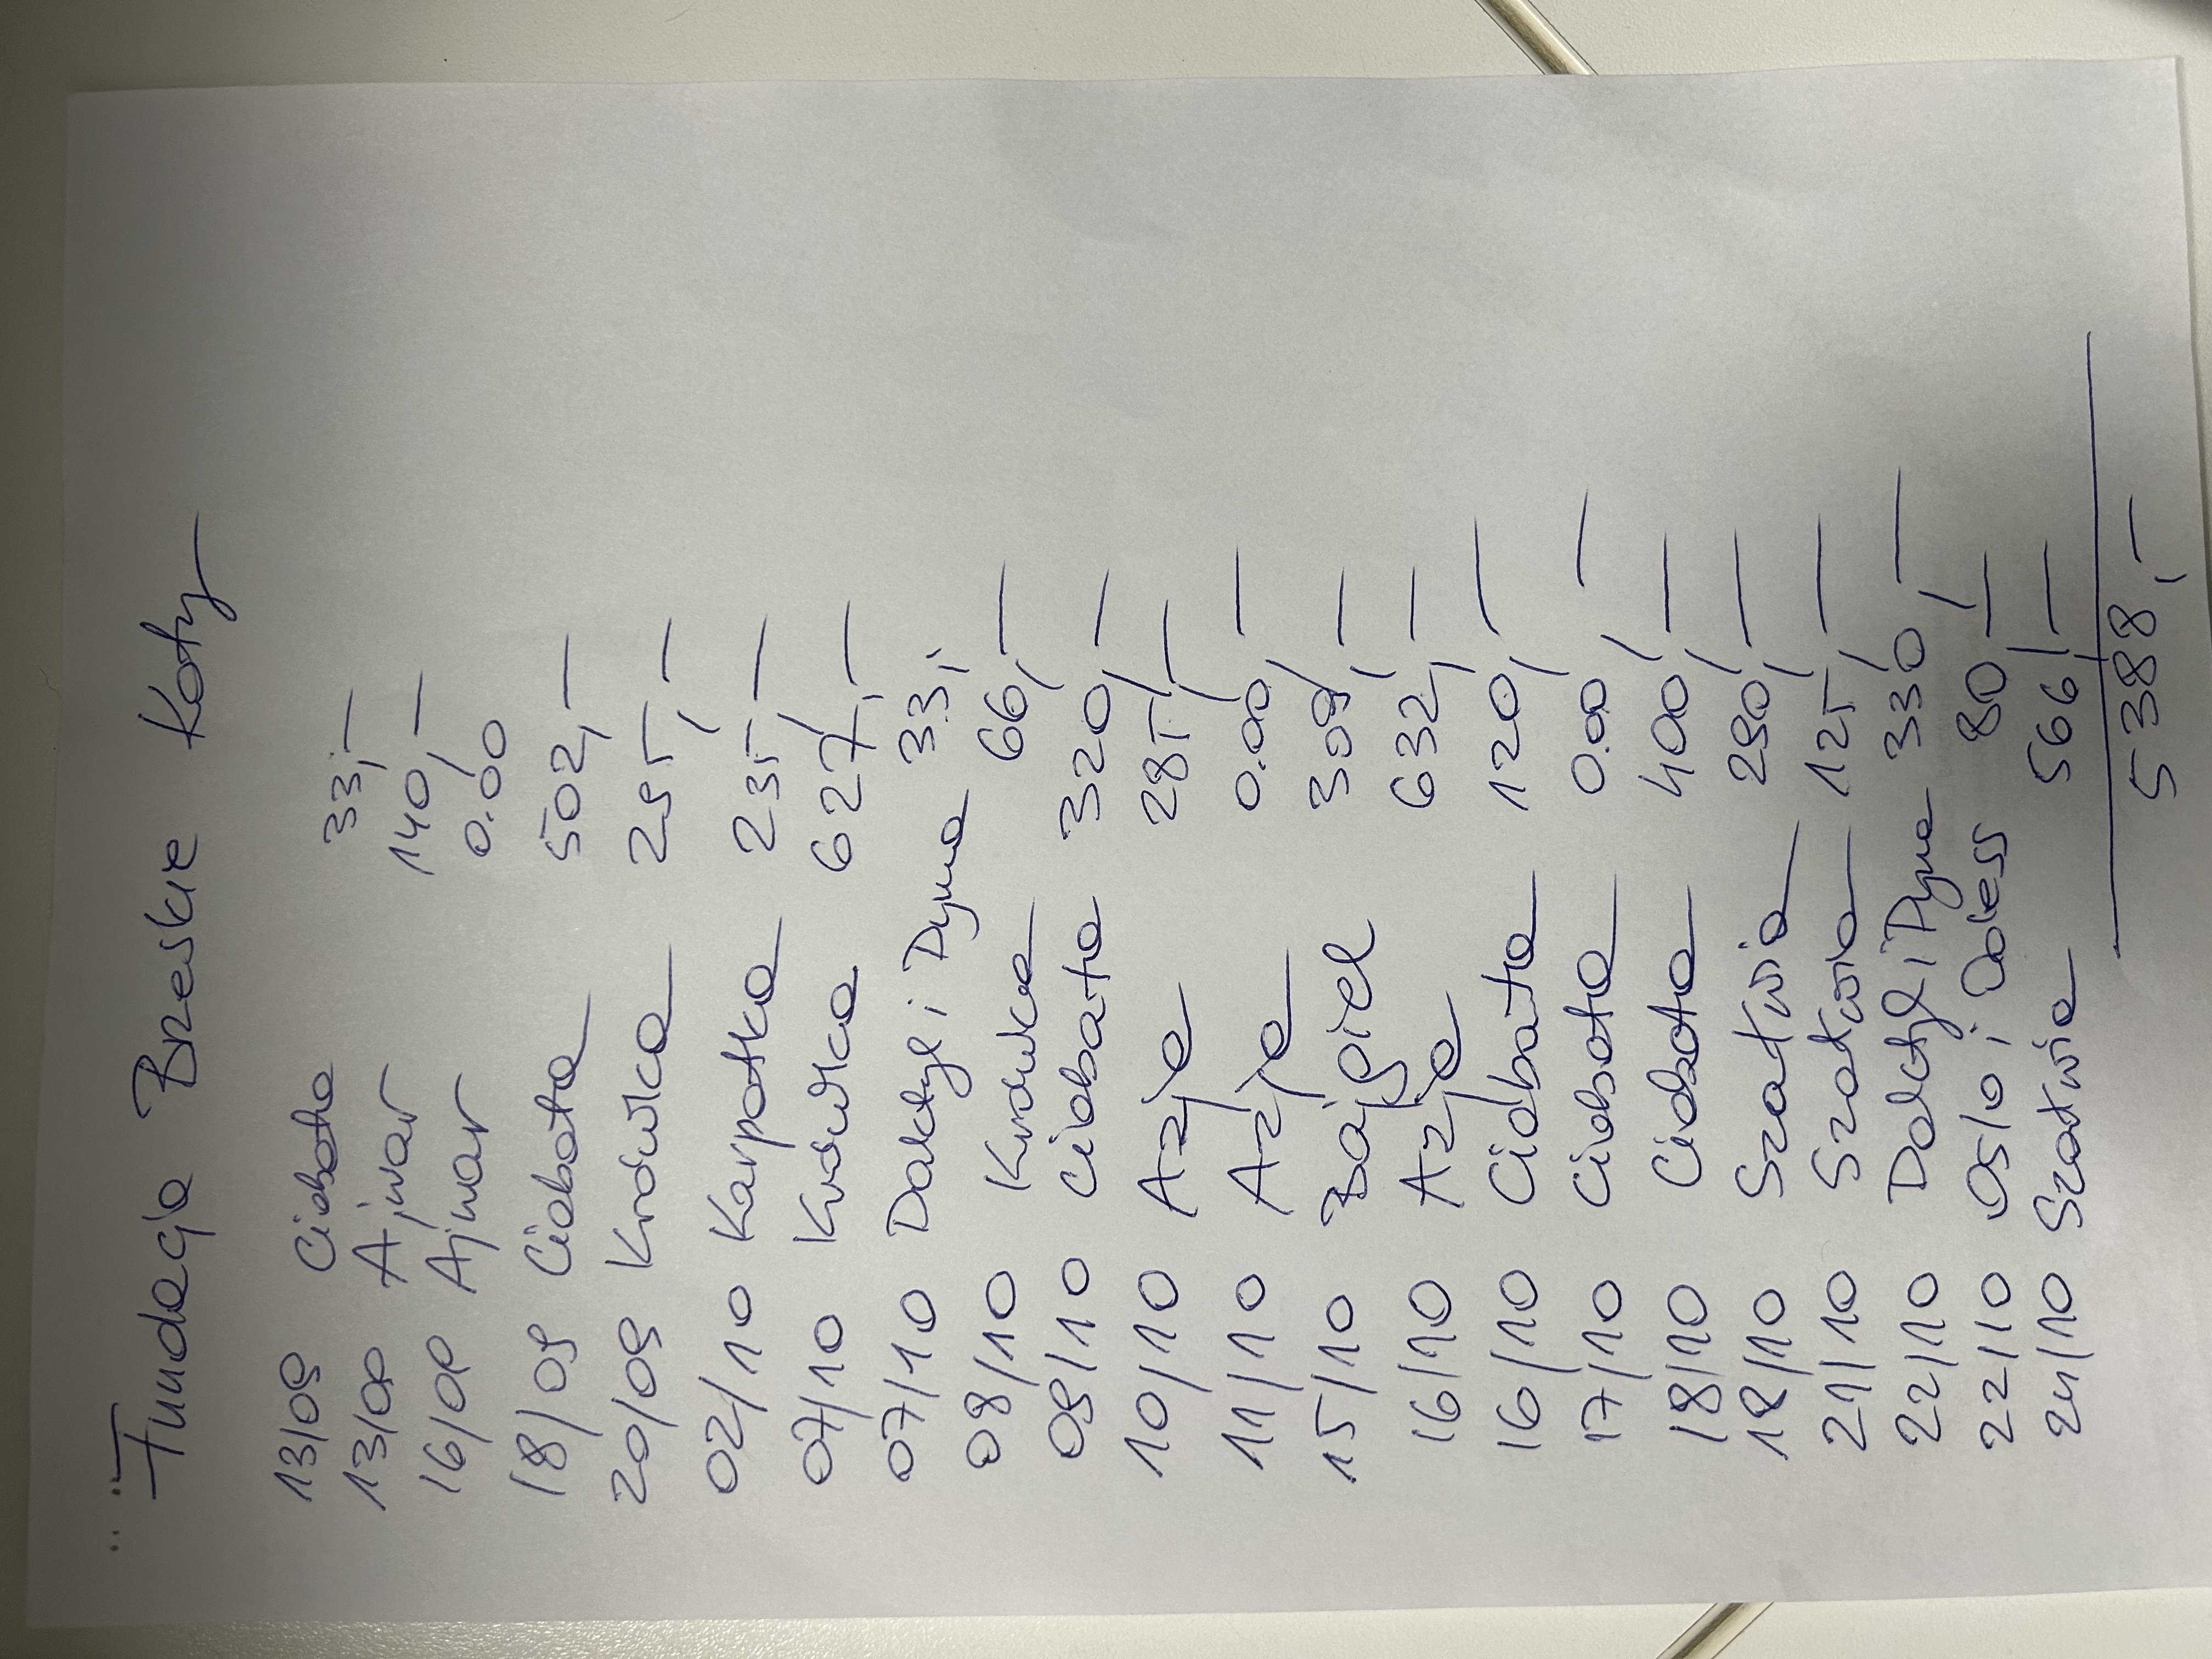 Fundacja Brzeskie Koty
13/09 Ciabata 33,-
13/09 Ajwar 140,-
16/09 Ajwar 0.00
18/09 Ciabata 502,-
20/09 Krówka 295,-
02/10 Karpatka 235,-
07/10 Krówka 627,-
07/10 Daktyl i Dyna 33,
08/10 Krówka 66,-
09/10 Ciabata 320,-
10/10 Azja 285,-
11/10 Azja 0.00,-
15/10 Bajgiel 309,-
16/10 Azja 632,-
16/10 Ciabata 120,-
17/10 Ciabata 0.00,-
18/10 Ciabata 400,-
18/10 Szałwia 290,-
21/10 Szałwia 125,-
22/10 Daktyl i Dyna 330,-
22/10 Oslo i 80,-
24/10 Szałwia 566,-
5388,-